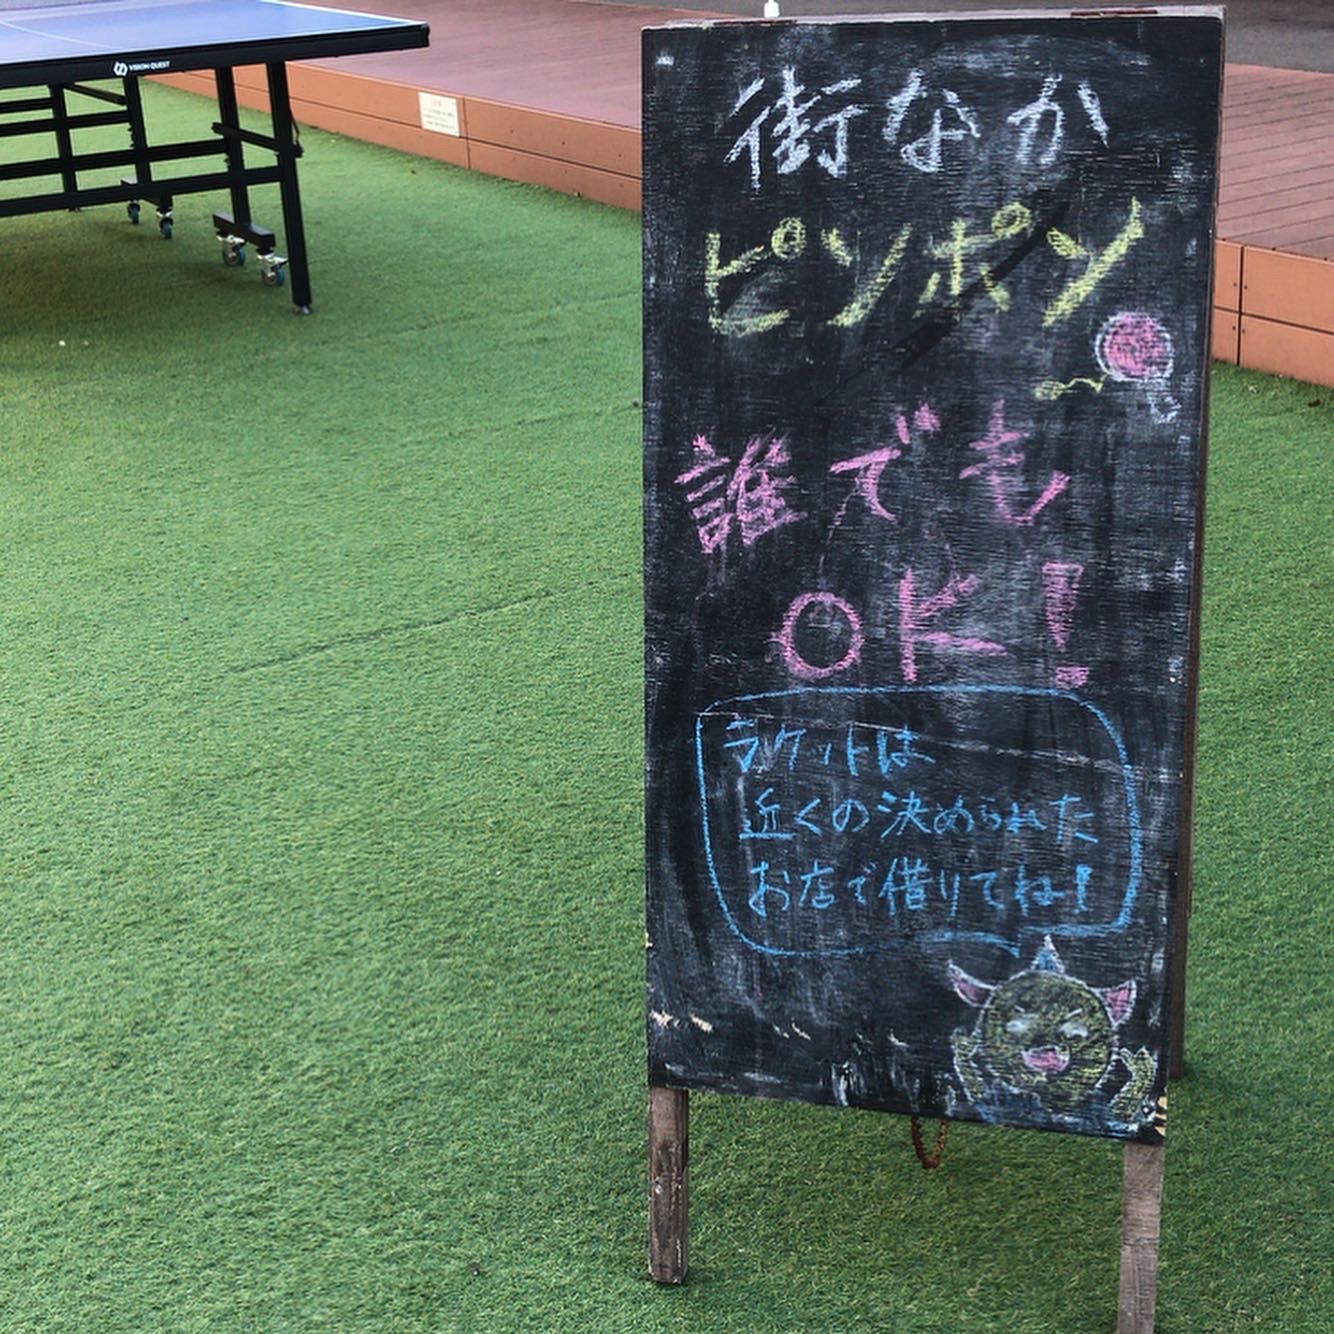 VISION QUEST
街なか
ピンポン
誰でも
OK!
ラケットは
近くの決められた
お店で借りてね!